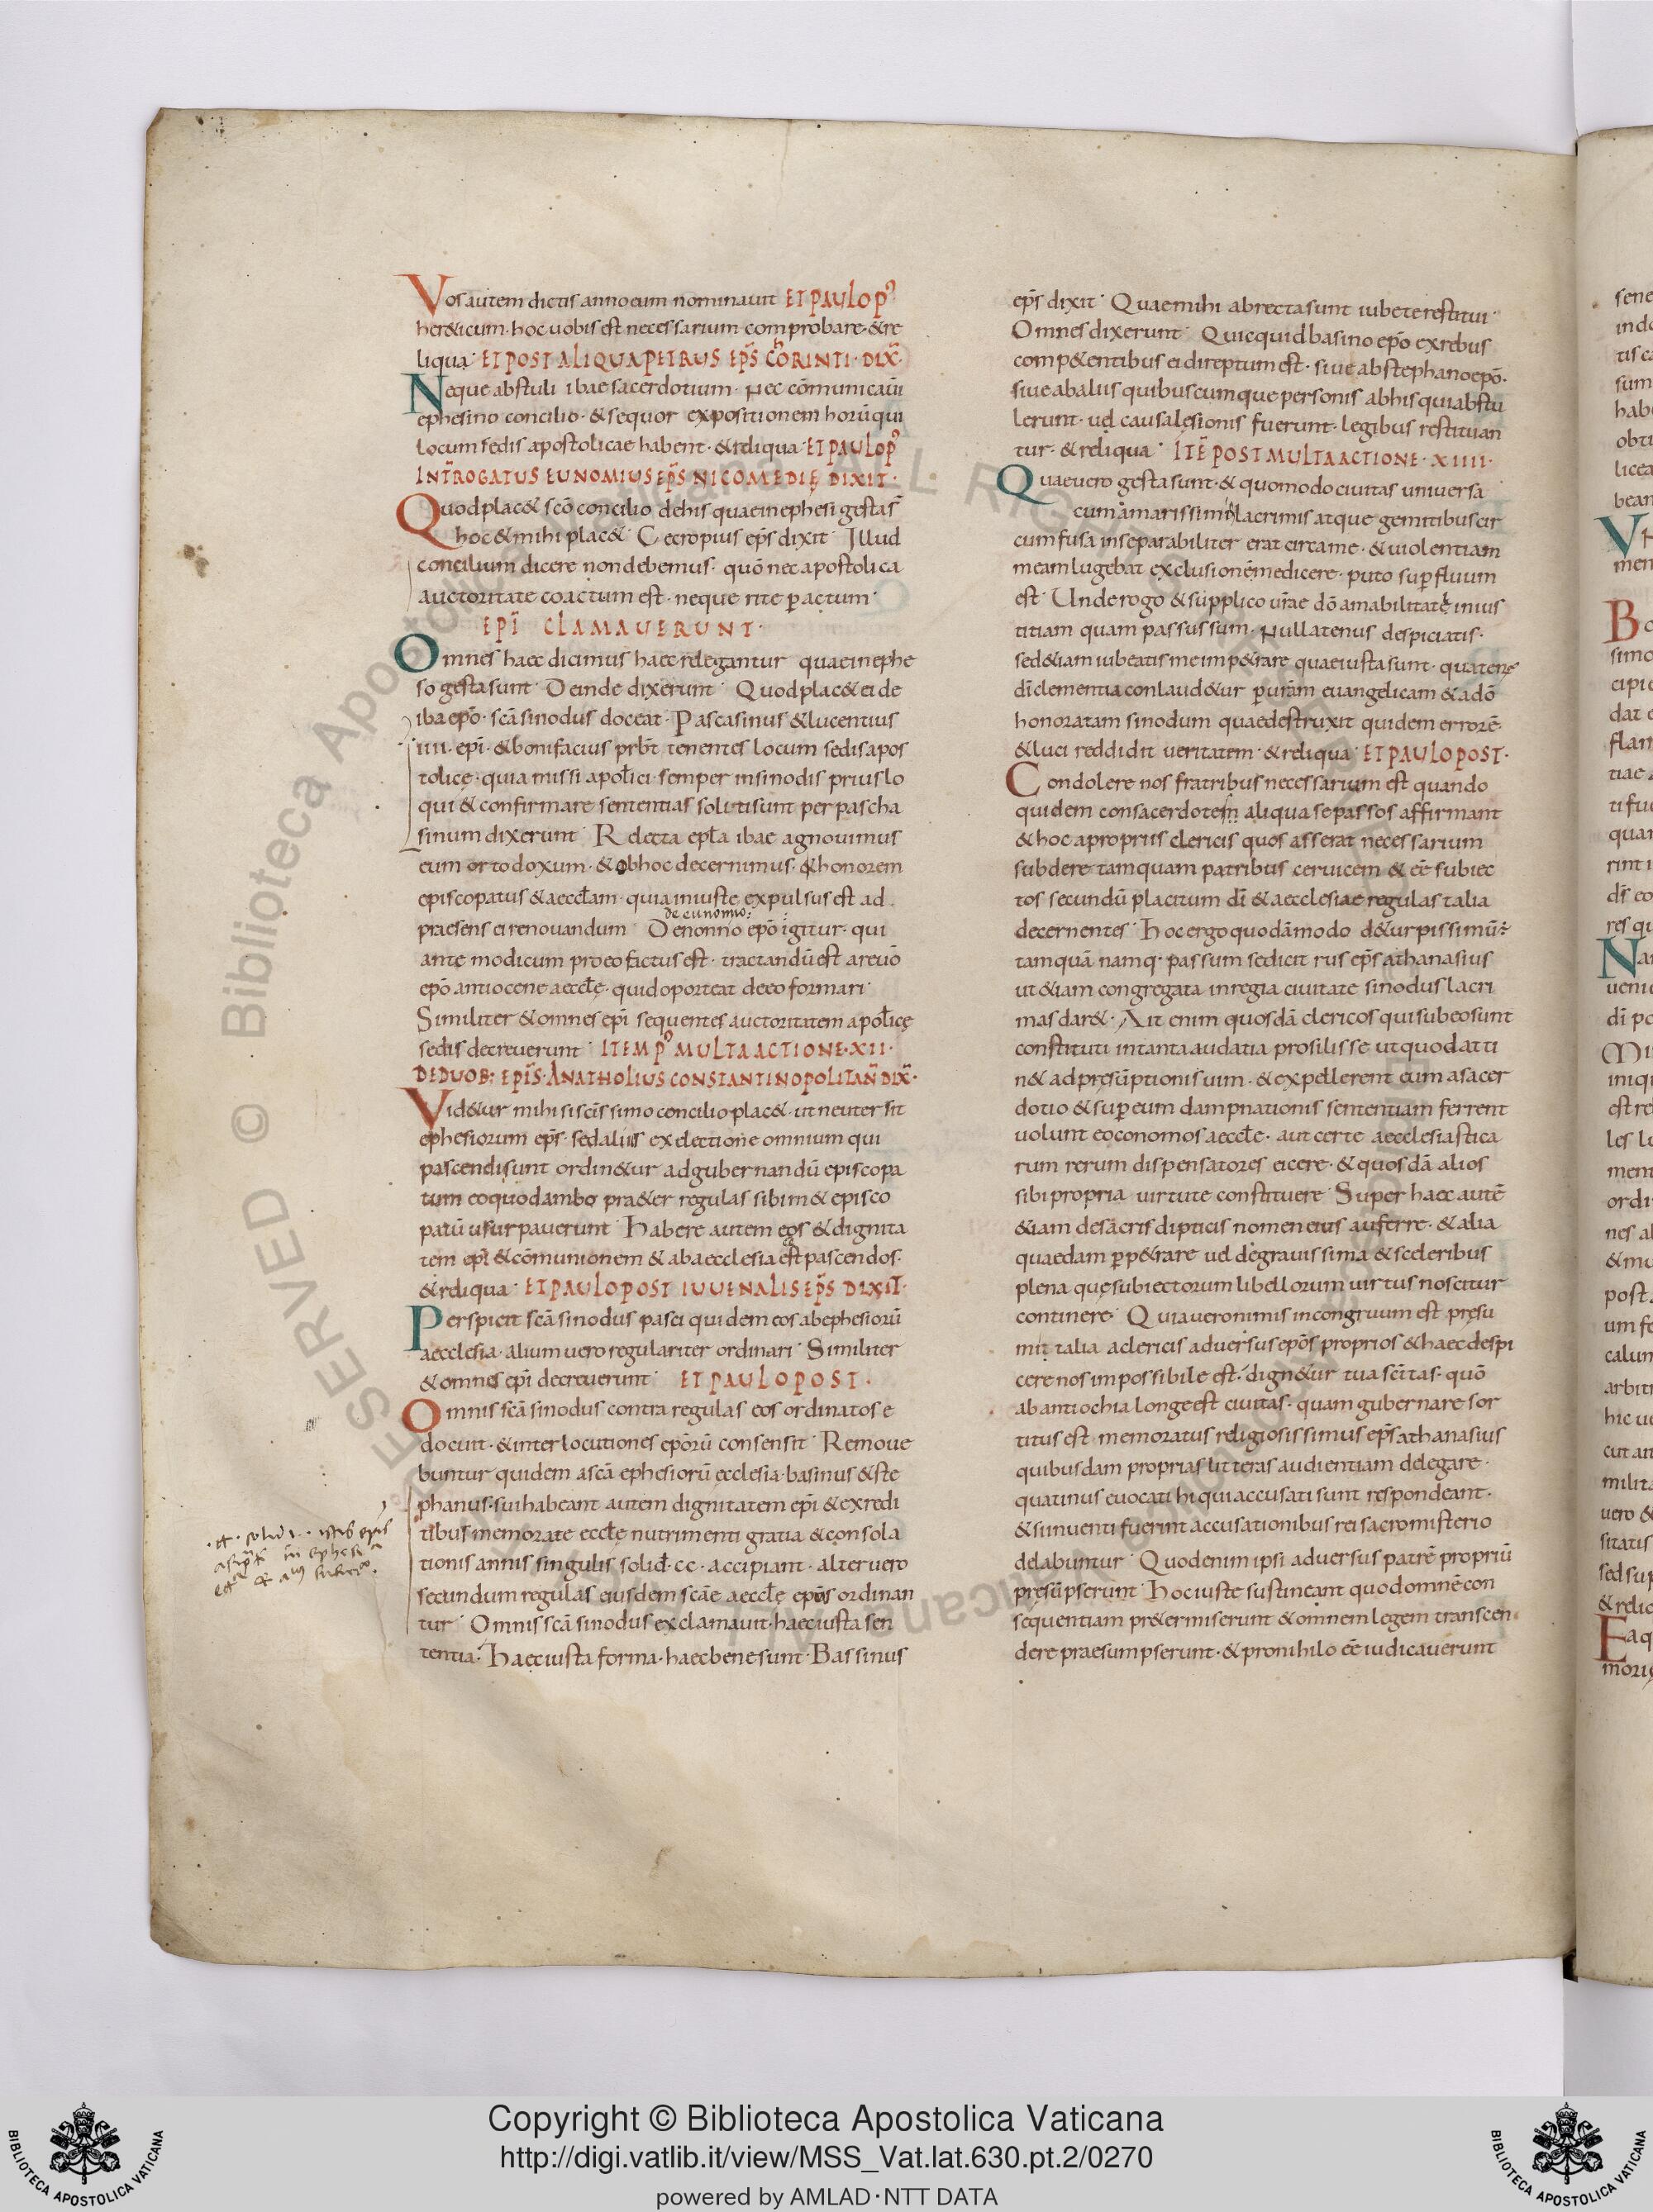 Vos autem dictis anno eum nominauit ET PAULO Pꝰ
her&icum · hoc uobis est necessarium comprobare · & re
liqua · ET POST ALIQUA PETRUS EPS̄ CORINTI · DIX̄ ·
Neque abstuli ibae sacerdotium · Nec cōmunicaui
ephesino concilio · & sequor expositionem horū qui
locum sedis apostolicae habent · & reliqua · ET PAUL OPꝰ
INTR̄OGATUS EUNOMIUS EPS̄ NICOMEDIĘ DIXIT ·
Quod plac& sc̄o concilio de his quae in ephesi gesta s̄
hoc & mihi plac& · Cecropius ep̄s dixit · Illud
concilium dicere non debemus · quō nec apostolica
auctoritate coactum est · neque rite ꝑactum ·
EPĪ CLAMAUERUNT ·
Omnes haec dicimus haec relegantur quae in ephe
so gesta sunt · Deinde dixerunt · Quod plac& ei de
iba ep̄o · sc̄a sinodus doceat · Pascasinus & lucentius
· IIII · ep̄i · & bonifacius prb̄t tenentes locum sedis apos
tolicę · quia missi apoł̄ici semper in sinodis prius lo
qui & confirmare sententias soliti sunt per pascha
sinum dixerunt · Relecta epła ibae agnouimus
eum ortodoxum · & ob hoc decernimus · & honorem
episcopatus & aeccłam · quia iniuste expulsus est ad
de eunomio:
praesens ei renouandum · De nonno ep̄o igitur · qui
ante modicum pro eo factus est · tractandū est a reuō
ep̄o antiocene aeccłę · quid oporteat de eo formari ·
Similiter & omnes ep̄i sequentes auctoritatem apoł̄icę
sedis decreuerunt · ITEM Pꝰ MULTA ACTIONE · XII ·
DE DUOB: EPIS̄ · ANATHOLIUS CONSTANTINOPOLITAN̄ DIX̄ ·
Vid&ur mihi si sc̄issimo concilio plac& · ut neuter sit
ephesiorum ep̄s · sed alius ex electione omnium qui
pascendi sunt ordin&ur ad gubernandū episcopa
tum eo quod ambo pra&er regulas sibim& episco
patū usurpauerunt · Habere autem eos & dignita
tem ep̄i & cōmunionem & ab aecclesia est pascendos ·
& reliqua · ET PAULO POST IUUENALIS EPS̄ DIXIT ·
Perspicit sc̄a sinodus pasci quidem eos ab ephesiorū
aecclesia · alium uero regulariter ordinari · Similiter
& omnes ep̄i decreuerunt · ET PAULO POST ·
Omnis sc̄a sinodus contra regulas eos ordinatos e
docuit · & interlocutiones ep̄orū consensit · Remoue
buntur quidem a sc̄a ephesiorū ecclesia · basinus & ste
phanus · sui habeant autem dignitatem ep̄i & ex redi
tibus memorate eccłę nutrimenti gratia & consola
tionis annis singulis solid̄ · cc · accipiant · alter uero
secundum regulas eiusdem sc̄ae aeccłę epōs ordinan
tur · Omnis sc̄a sinodus exclamauit · haec iusta sen
tentia · Haec iusta forma · haec bene sunt · Bassinus
ep̄s dixit · Quae mihi abrecta sunt iubete restitui ·
Omnes dixerunt · Quicquid basino ep̄o ex rebus
comp&entibus ei direptum est · siue ab stephano ep̄o ·
siue ab aliis quibuscumque personis ab his qui abstu
lerunt · uel causa lesionis fuerunt · legibus restituan
tur · & reliqua · ITĒ POST MULTA ACTIONE · XIIII ·
Quae uero gesta sunt · & quomodo ciuitas uniuersa
cum amarissimis lacrimis atque gemitibus cir
cumfusa inseparabiliter erat circa me · & uiolentiam
meam lugebat exclusionē me dicere · puto suꝑfluum
est · Unde rogo & supplico ur̄ae dō amabilitatę inius
titiam quam passus sum · Nullatenus despiciatis ·
sed &iam iubeatis me imp&rare quae iusta sunt · quatenꝰ
dī clementia conlaud&ur ꝑ ur̄am euangelicam & a dō
honoratam sinodum quae destruxit quidem errorē ·
& luci reddidit ueritatem · & reliqua · ET PAULO POST ·
Condolere nos fratribus necessarium est quando
quidem consacerdotem aliqua se passos affirmant
& hoc a propriis clericis quos asserat necessarium
subdere tamquam patribus ceruicem & eē subiec
tos secundū placitum dī & aecclesiae regulas talia
decernentes · Hoc ergo quodāmodo d&urpissimū:
tamquā namq· passum se dicit rus ep̄s athanasius
ut &iam congregata in regia ciuitate sinodus lacri
mas dar& · Ait enim quosdā clericos qui sub eo sunt
constituti in tanta audatia prosilisse ut quod atti
n& ad pręsūptionis uim · & expellerent eum a sacer
dotio & suꝑ eum dampnationis sententiam ferrent
uolunt eoconomos aeccłe · aut certe aecclesiastica
rum rerum dispensatores eicere · & quosdā alios
sibi propria uirtute constituere · Super haec autē
&iam de sacris dipticis nomen eius auferre · & alia
quaedam ꝑp&rare uel de grauissima & sceleribus
plena quę subiectorum libellorum uirtus noscitur
continere · Quia uero nimis incongruum est pręsu
mit talia a clericis aduersus ep̄os proprios & haec despi
cere nos impossibile est · dign&ur tua sc̄itas · quō
ab antiochia longe est ciuitas · quam gubernare sor
titus est memoratus religiosissimus ep̄s athanasius
quibusdam proprias litteras audientiam delegare ·
quatinus euocati hi qui accusati sunt respondeant ·
& si inuenti fuerint accusationibus rei sacro misterio
delabuntur · Quod enim ipsi aduersus patrē propriū
pręsūpserunt · Hoc iuste sustineant quod omnē con
sequentiam pr&ermiserunt & omnem legem transcen
dere praesumpserunt · & pro nihilo eē iudicauerunt
Copyright © Biblioteca Apostolica Vaticana
http://digi.vatlib.it/view/MSS_Vat.lat.630.pt.2/0270
powered by AMLAD·NTT DATA
BIBLIOTECA APOSTOLICA VATICANA
BIBLIOTECA APOSTOLICA VATICANA